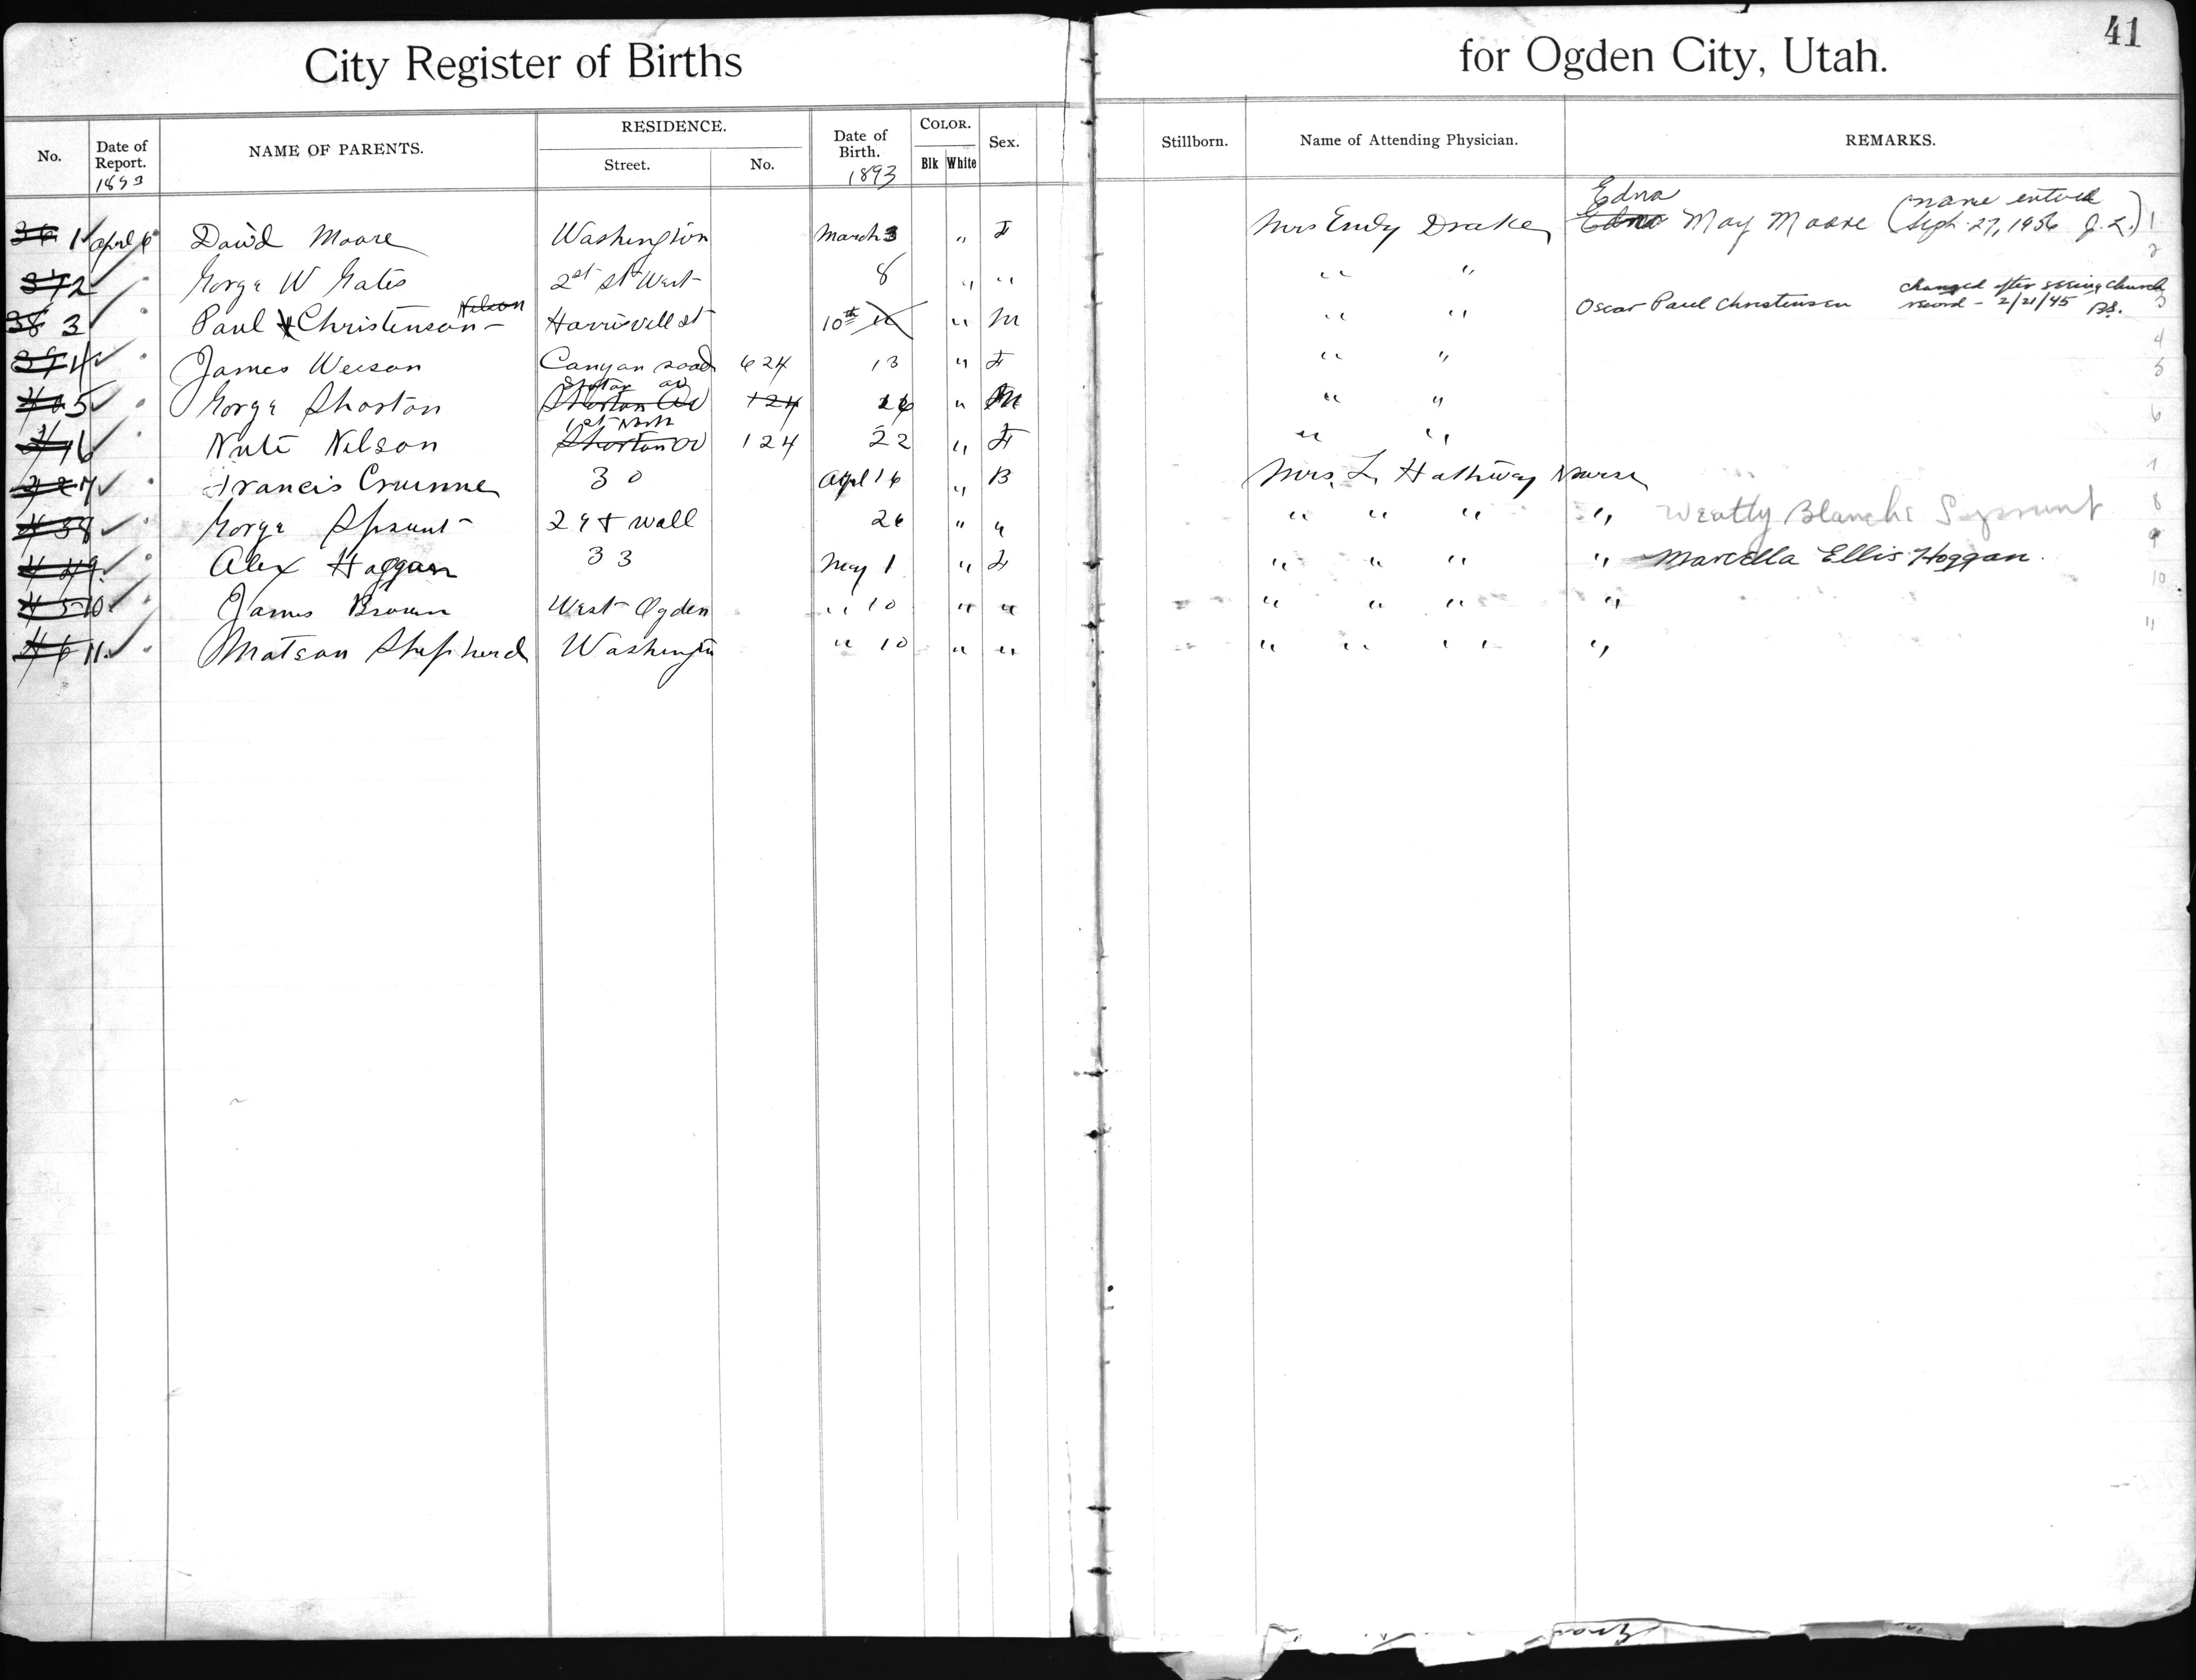 41
City Register of Births for Ogden City, Utah.
No. Date of Report. 1893 NAME OF PARENTS. RESIDENCE. Street. No. Date of Birth. 1893 COLOR. Blk White Sex. Stillborn. Name of Attending Physician. REMARKS.
36 1 April 6 David Moore Washington March 3 " F Mrs Emily Drake Edna Edna May Moore (name entered Sept. 27, 1956 J.L.) 1
37 2 Gorge W Gates 2st St West 8 " " " " 2
38 3 Paul Christenson Nelson Harrisvill st 10th " M " " Oscar Paul Christensen changed after seeing church record - 2/21/45 BS. 3
39 4 James Weeson Canyan road 624 13 " F " " 4
40 5 Gorge Shorton Shorton Av 124 26 " M " " 5
41 6 Nute Nelson 1st North Shorton av 124 22 " F " " 6
42 7 Francis 30 Apl 16 " B Mrs. L. Hathway Nurse 7
43 8 Gorge Sprunt 29 + wall 26 " " " " " " Blanche 8
44 9. Alex Hoggan 33 May 1 " F " " " " Marcella Ellis Hoggan. 9
45 10. James Brown West Ogden " 10 " " " " " " 10
46 11. Matson Shepherd Washington " 10 " " " " " " 11